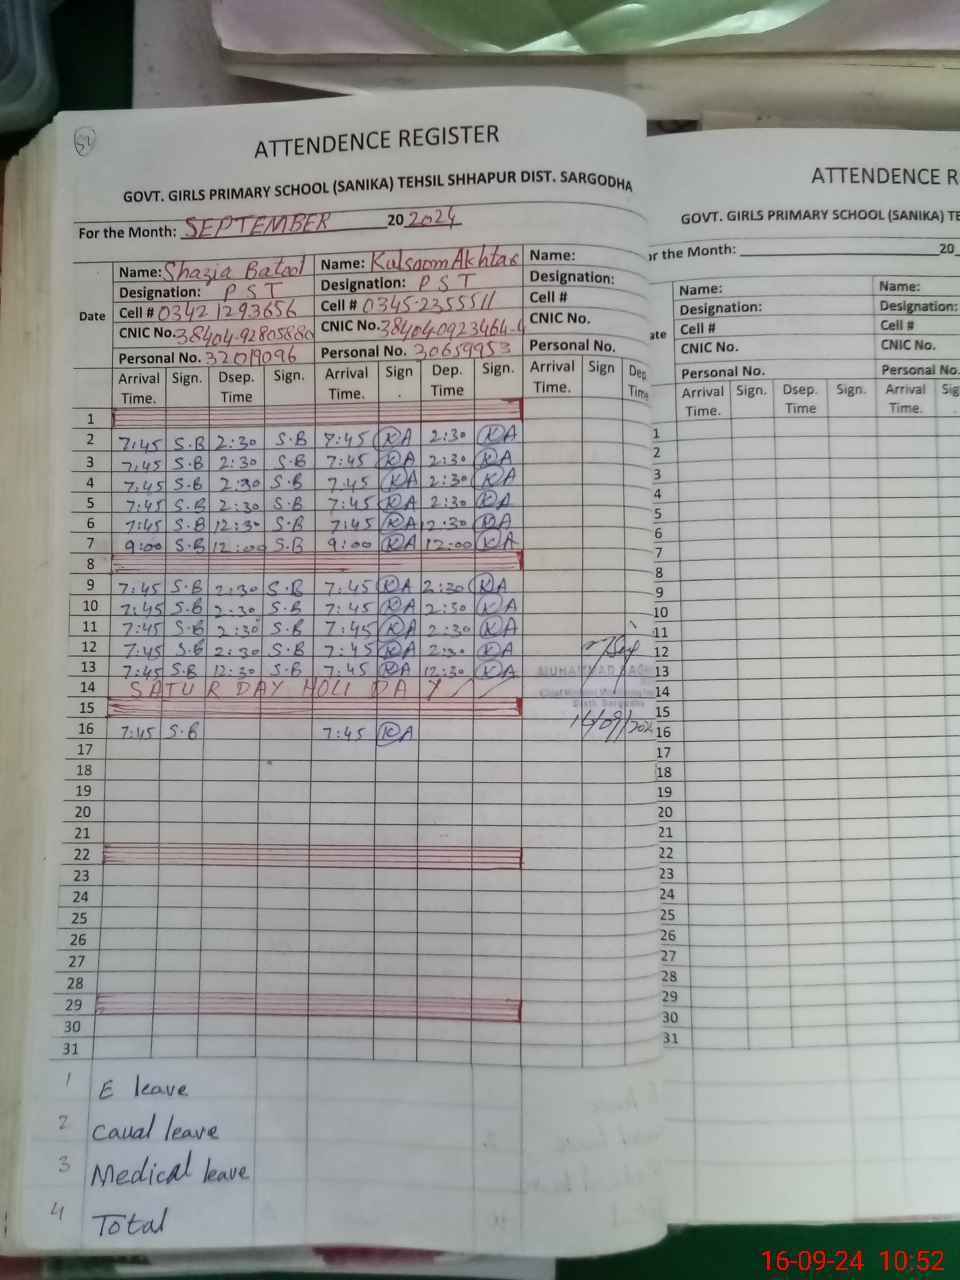 52
ATTENDENCE REGISTER
GOVT. GIRLS PRIMARY SCHOOL (SANIKA) TEHSIL SHHAPUR DIST. SARGODHA
For the Month: SEPTEMBER 20 2024
Date Name: Shazia Batool Name: Kulsoom Akhtar Name:
Designation: P S T Designation: P S T Designation:
Cell # 0342 1293656 Cell # 0345-2355511 Cell #
CNIC No. 38404-9280588 CNIC No. 384040923464-4 CNIC No.
Personal No. 32019096 Personal No. 30659953 Personal No.
Arrival Time. Sign. Dsep. Time Sign. Arrival Time. Sign. Dep. Time Sign. Arrival Time. Sign Dep Time
1
2 7:45 S.B 2:30 S.B 7:45 KA 2:30 KA
3 7:45 S.B 2:30 S.B 7:45 KA 2:30 KA
4 7:45 S.B 2:30 S.B 7:45 KA 2:30 KA
5 7:45 S.B 2:30 S.B 7:45 KA 2:30 KA
6 7:45 S.B 12:30 S.B 7:45 KA 12:30 KA
7 9:00 S.B 12:00 S.B 9:00 KA 12:00 KA
8
9 7:45 S.B 2:30 S.B 7:45 KA 2:30 KA
10 7:45 S.B 2:30 S.B 7:45 KA 2:30 KA
11 7:45 S.B 2:30 S.B 7:45 KA 2:30 KA
12 7:45 S.B 2:30 S.B 7:45 KA 2:30 KA
13 7:45 S.B 12:30 S.B 7:45 KA 12:30 KA MUHAMMAD
14 SATURDAY HOLIDAY
15
16 7:45 S.B 7:45 KA 16/09/202
17
18
19
20
21
22
23
24
25
26
27
28
29
30
31
1 E leave
2 Caual leave
3 Medical leave
4 Total
ATTENDENCE R
GOVT. GIRLS PRIMARY SCHOOL (SANIKA) TE
or the Month: 20
ate Name: Name:
Designation: Designation:
Cell # Cell #
CNIC No. CNIC No.
Personal No. Personal No.
Arrival Time. Sign. Dsep. Time Sign. Arrival Time. Sig
1
2
3
4
5
6
7
8
9
10
11
12
13
14
15
16
17
18
19
20
21
22
23
24
25
26
27
28
29
30
31
16-09-24 10:52